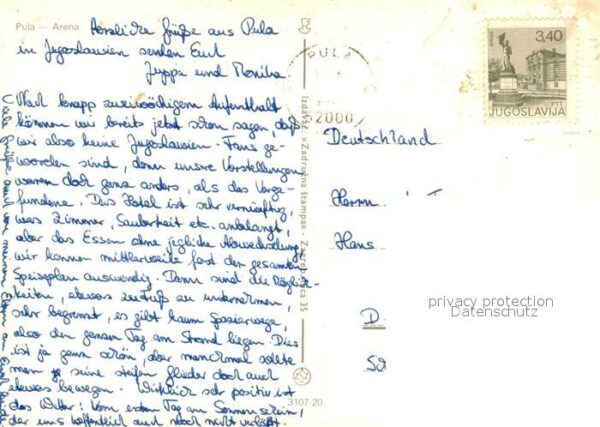 Pula – Arena
Herzliche Grüße aus Pula
in Jugoslawien senden Euch
Juppa und Monika.
Nach knapp zweiwöchigem Aufenthalt
können wir bereits jetzt schon sagen, daß
wir also keine Jugoslawien-Fans ge-
worden sind, denn unsre Vorstellungen
waren doch ganz anders, als das Vorge-
fundene. Das Hotel ist sehr vernünftig,
was Zimmer, Sauberkeit etc. anbelangt,
aber das Essen ohne jegliche Abwechslung,
wir kennen mittlerweile fast den gesamten
Speiseplan auswendig. Dann sind die Möglich-
keiten, etwas zu Fuß zu unternehmen,
sehr begrenzt, es gibt kaum Spazierwege,
also den ganzen Tag am Strand liegen. Dies
ist ja ganz schön, aber manchmal sollte
man ja seine steifen Glieder doch auch
etwas bewegen. Wirklich sehr positiv ist
das Wetter: Vom ersten Tag an Sonnenschein,
der uns hoffentlich auch noch nicht verläßt.
Viele Grüße auch von meinen Eltern an Euch beide
Izdavač: »Zadružna štampa« - Zagreb
35
3107-20
PULA
52000
3,40
PTT
JUGOSLAVIJA
Deutschland
Herrn
Hans
D
privacy protection
Datenschutz